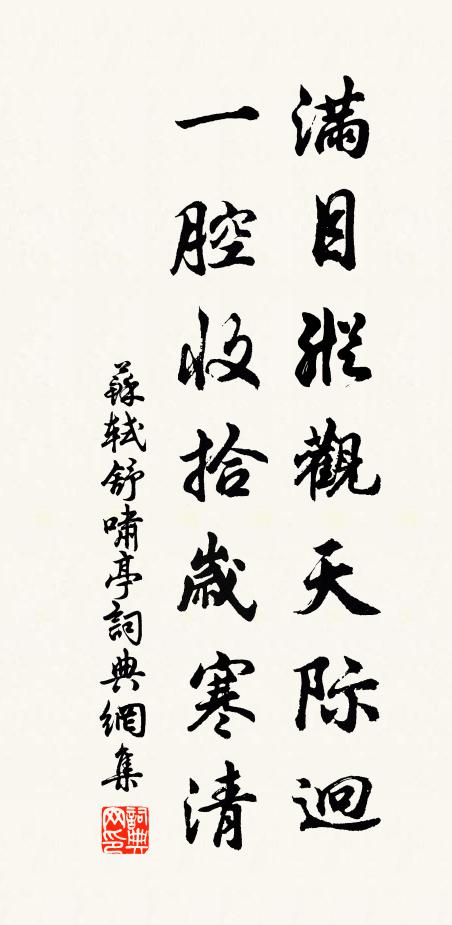 滿目縱觀天際迥
一腔收拾歲寒清
蘇軾舒嘯亭詞典網集
詞典网印